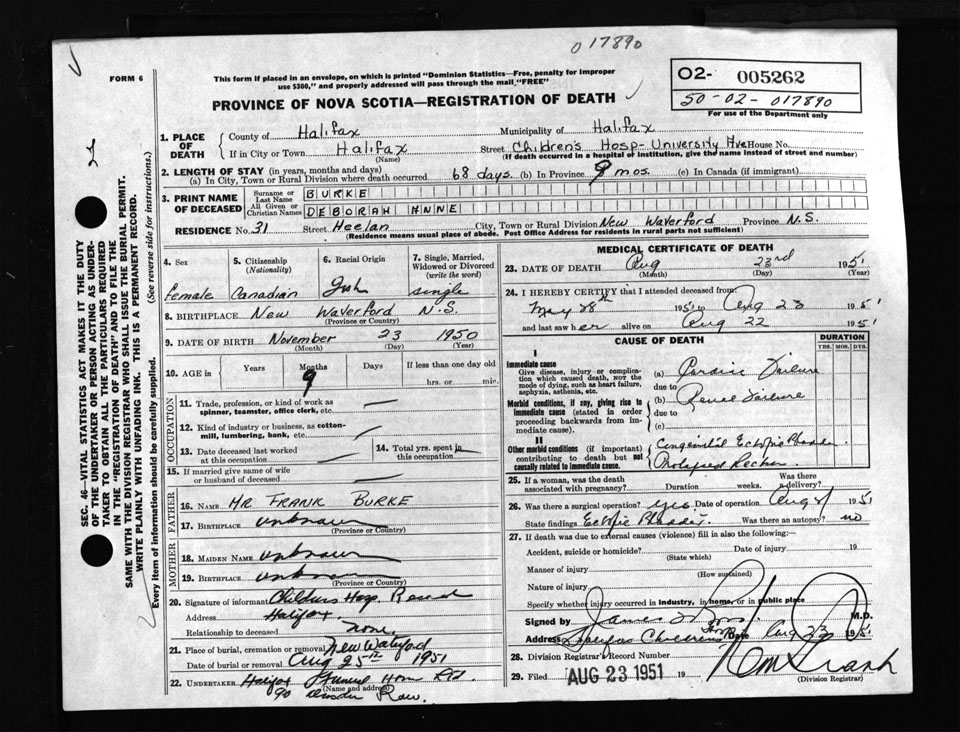 017890
FORM 6
This form if placed in an envelope, on which is printed "Dominion Statistics—Free, penalty for improper
use $300," and properly addressed will pass through the mail "FREE"
O2- 005262
50-02-017890
For use of the Department only
PROVINCE OF NOVA SCOTIA—REGISTRATION OF DEATH
1. PLACE OF DEATH
County of Halifax Municipality of Halifax
If in City or Town Halifax (Name) Street Children's Hosp-University Ave House No.
(If death occurred in a hospital or institution, give the name instead of street and number)
2. LENGTH OF STAY (in years, months and days)
(a) In City, Town or Rural Division where death occurred 68 days (b) In Province 9 mos. (c) In Canada (if immigrant)
3. PRINT NAME OF DECEASED
Surname or Last Name BURKE
All Given or Christian Names DEBORAH ANNE
RESIDENCE No. 31 Street Heelan City, Town or Rural Division New Waverford Province N.S.
(Residence means usual place of abode. Post Office Address for residents in rural parts not sufficient)
4. Sex
female
5. Citizenship (Nationality)
Canadian
6. Racial Origin
Irish
7. Single, Married, Widowed or Divorced (write the word)
single
8. BIRTHPLACE New Waverford N.S.
(Province or Country)
9. DATE OF BIRTH November 23 1950
(Month) (Day) (Year)
10. AGE in Years Months 9 Days If less than one day old
hrs. or min.
OCCUPATION
11. Trade, profession, or kind of work as
spinner, teamster, office clerk, etc.
12. Kind of industry or business, as cotton-
mill, lumbering, bank, etc.
13. Date deceased last worked
at this occupation
14. Total yrs. spent in
this occupation
15. If married give name of wife
or husband of deceased
FATHER
16. NAME MR FRANK BURKE
17. BIRTHPLACE unknown
(Province or Country)
MOTHER
18. MAIDEN NAME unknown
19. BIRTHPLACE unknown
(Province or Country)
20. Signature of informant Childrens Hosp. Record
Address Halifax
Relationship to deceased none
21. Place of burial, cremation or removal New Waterford
Date of burial or removal Aug 25th 1951
22. UNDERTAKER Halifax Funeral Home Ltd
(Name and address)
90 Row.
MEDICAL CERTIFICATE OF DEATH
23. DATE OF DEATH Aug 23rd 1951
(Month) (Day) (Year)
24. I HEREBY CERTIFY that I attended deceased from:
May 28th 1951 to Aug 23 1951
and last saw her alive on Aug 22 1951
CAUSE OF DEATH
DURATION
YRS. MOS. DYS.
I
Immediate cause
Give disease, injury or complica-
tion which caused death, NOT the
mode of dying, such as heart failure,
asphyxia, asthenia, etc.
(a) Cardiac Failure
due to
Morbid conditions, if any, giving rise to
immediate cause (stated in order
proceeding backwards from im-
mediate cause).
(b) Renal Failure
due to
(c)
II
Other morbid conditions (if important)
contributing to death but not
causally related to immediate cause.
Congenital Ectopic Bladder.
Prolapsed Rectum
25. If a woman, was the death
associated with pregnancy? Duration weeks. Was there
a delivery?
26. Was there a surgical operation? yes Date of operation Aug 1951
State findings Ectopic Bladder. Was there an autopsy? no
27. If death was due to external causes (violence) fill in also the following:—
Accident, suicide or homicide? Date of injury 19
(State which)
Manner of injury
(How sustained)
Nature of injury
Specify whether injury occurred in industry, in home, or in public place
Signed by James M.D.
Address Halifax Childrens Hosp Date Aug 23 1951
28. Division Registrar's Record Number
29. Filed AUG 23 1951 19
(Division Registrar)
SEC. 46—VITAL STATISTICS ACT MAKES IT THE DUTY
OF THE UNDERTAKER OR PERSON ACTING AS UNDER-
TAKER TO OBTAIN ALL THE PARTICULARS REQUIRED
IN THE "REGISTRATION OF DEATH" AND TO FILE THE
SAME WITH THE DIVISION REGISTRAR WHO SHALL ISSUE THE BURIAL PERMIT.
WRITE PLAINLY WITH UNFADING INK. THIS IS A PERMANENT RECORD.
Every item of information should be carefully supplied. (See reverse side for instructions.)